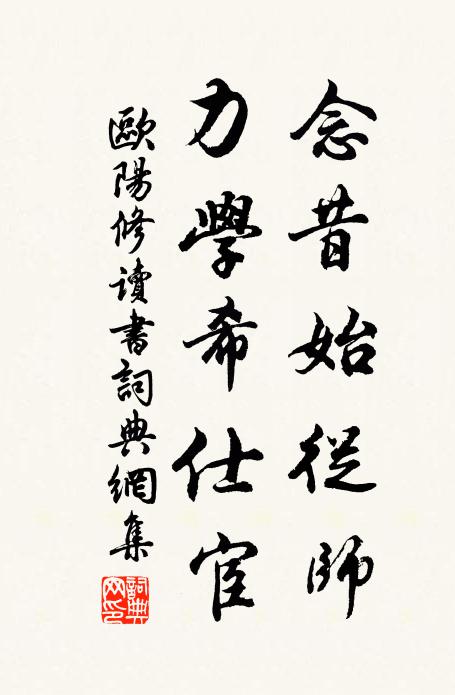 念昔始從師
力學希仕宦
歐陽修讀書詞典網集
詞典網印